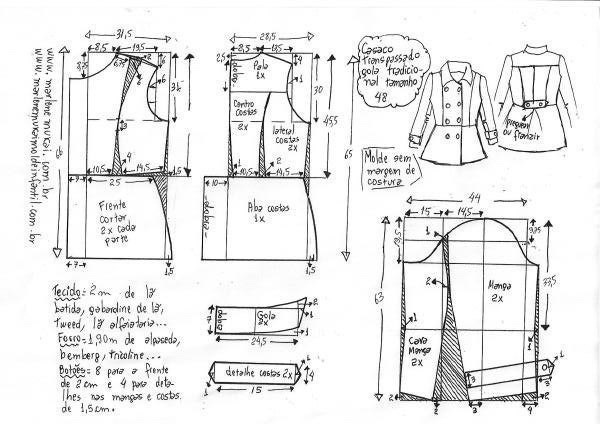 www.marlenemukai.com.br
www.marlenemukaimoldeinfantil.com.br
31,5
8,5
19,5
8,75
6,75
2
6
6
2
1
31,5
3
66
4
10,5
14,5
1,5
7
25
Frente
cortar
2x cada
parte
7
1,5
28,5
8,5
18,5
2,5
4
Pala
1x
dobra
1
30
45,5
Centro
costas
2x
lateral
costas
2x
10,5
2
14,5
1,5
10
dobra
Aba costas
1x
1,5
65
Casaco
transpassado
gola tradicio
nal tamanho
48
Molde sem
margem de
costura
pregueado
ou franzir
44
15
14,5
1
9,25
63
2
Manga
2x
33,5
Cava
Manga
2x
1
1
3
3
2
2
3
4
2
Tecido: 2m de lã
batida, gabardine de lã,
tweed, lã alfaiataria...
Forro: 1,90m de alpaseda,
bemberg, tricoline...
Botões: 8 para a frente
de 2cm e 4 para deta
lhes nas mangas e costas
de 1,5cm.
7
Gola
2x
2
1
24,5
1
detalhe costas 2x
1
4
15